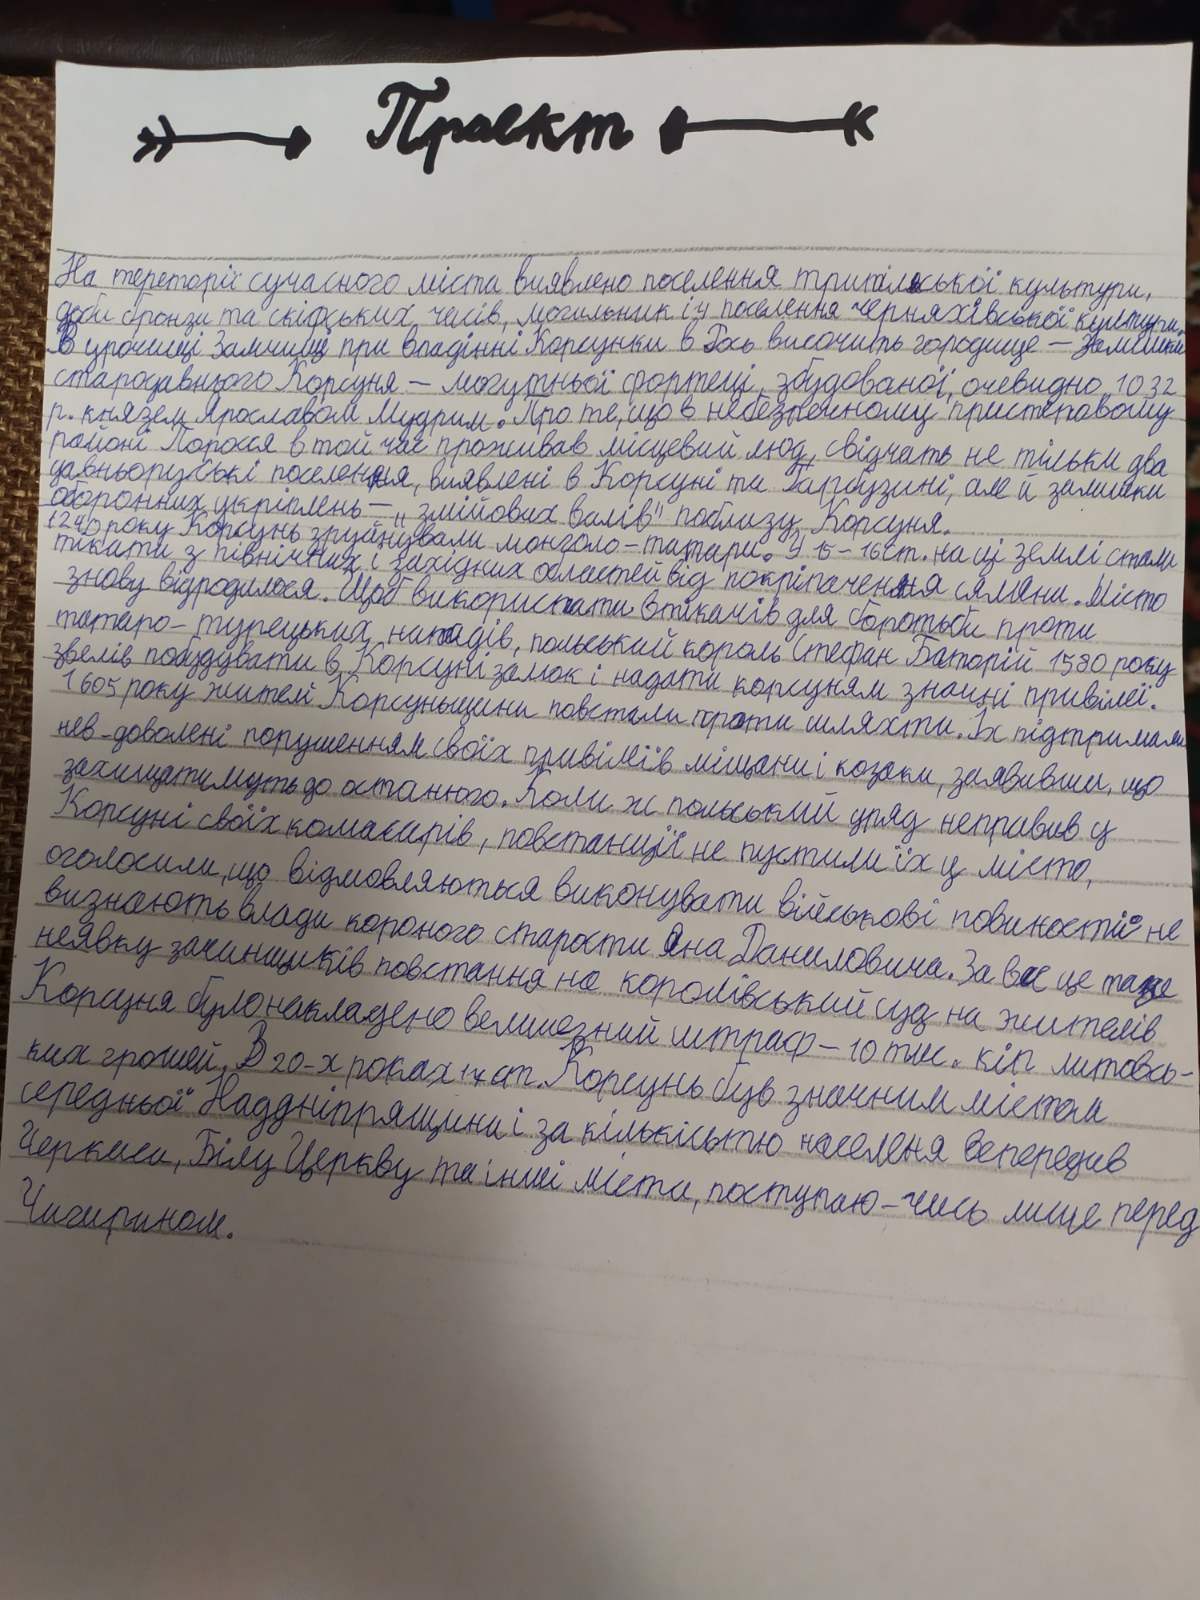 Проект
На тереторії сучасного міста виявлено поселення трипільської культури,
доби бронзи та скіфських часів, могильник і 4 поселення черняхівської культури.
В урочищі Замчище при впадінні Корсунки в Рось височить городище – залишки
стародавнього Корсуня – могутньої фортеці, збудованої, очевидно, 1032
р. князем Ярославом Мудрим. Про те, що в небезпечному пристеповому
районі Поросся в той час проживав місцевий люд, свідчать не тільки два
давньоруські поселення, виявлені в Корсуні та Гарбузині, але й залишки
оборонних укріплень – „змійових валів" поблизу Корсуня.
1240 року Корсунь зруйнували монголо-татари. У 15-16 ст. на ці землі стали
тікати з північних і західних областей від покріпачення селяни. Місто
знову відродилося. Щоб використати втікачів для боротьби проти
татаро-турецьких нападів, польський король Стефан Баторій 1580 року
звелів побудувати в Корсуні замок і надати корсуням значні привілеї.
1605 року жителі Корсуньщини повстали проти шляхти. Їх підтримали
нев-доволені порушенням своїх привілеїв міщани і козаки, заявивши, що
захищатимуть до останього. Коли ж польський уряд неправив у
Корсуні своїх комасарів, повстанції не пустили їх у місто,
оголосили, що відмовляються виконувати військові повиності й не
визнають влади короного старости Яна Даниловича. За все це та не
неявку зачинщиків повстання на королівський суд на жителів
Корсуня було накладено величезний штраф – 10 тис. кіп литовсь-
ких грошей. В 20-х роках 17 ст. Корсунь був значним містом
середньої Наддніпрящини і за кількістю населеня вепередив
Черкаси, Білу Церкву та інші міста, поступаю-чись лище перед
Чигирином.